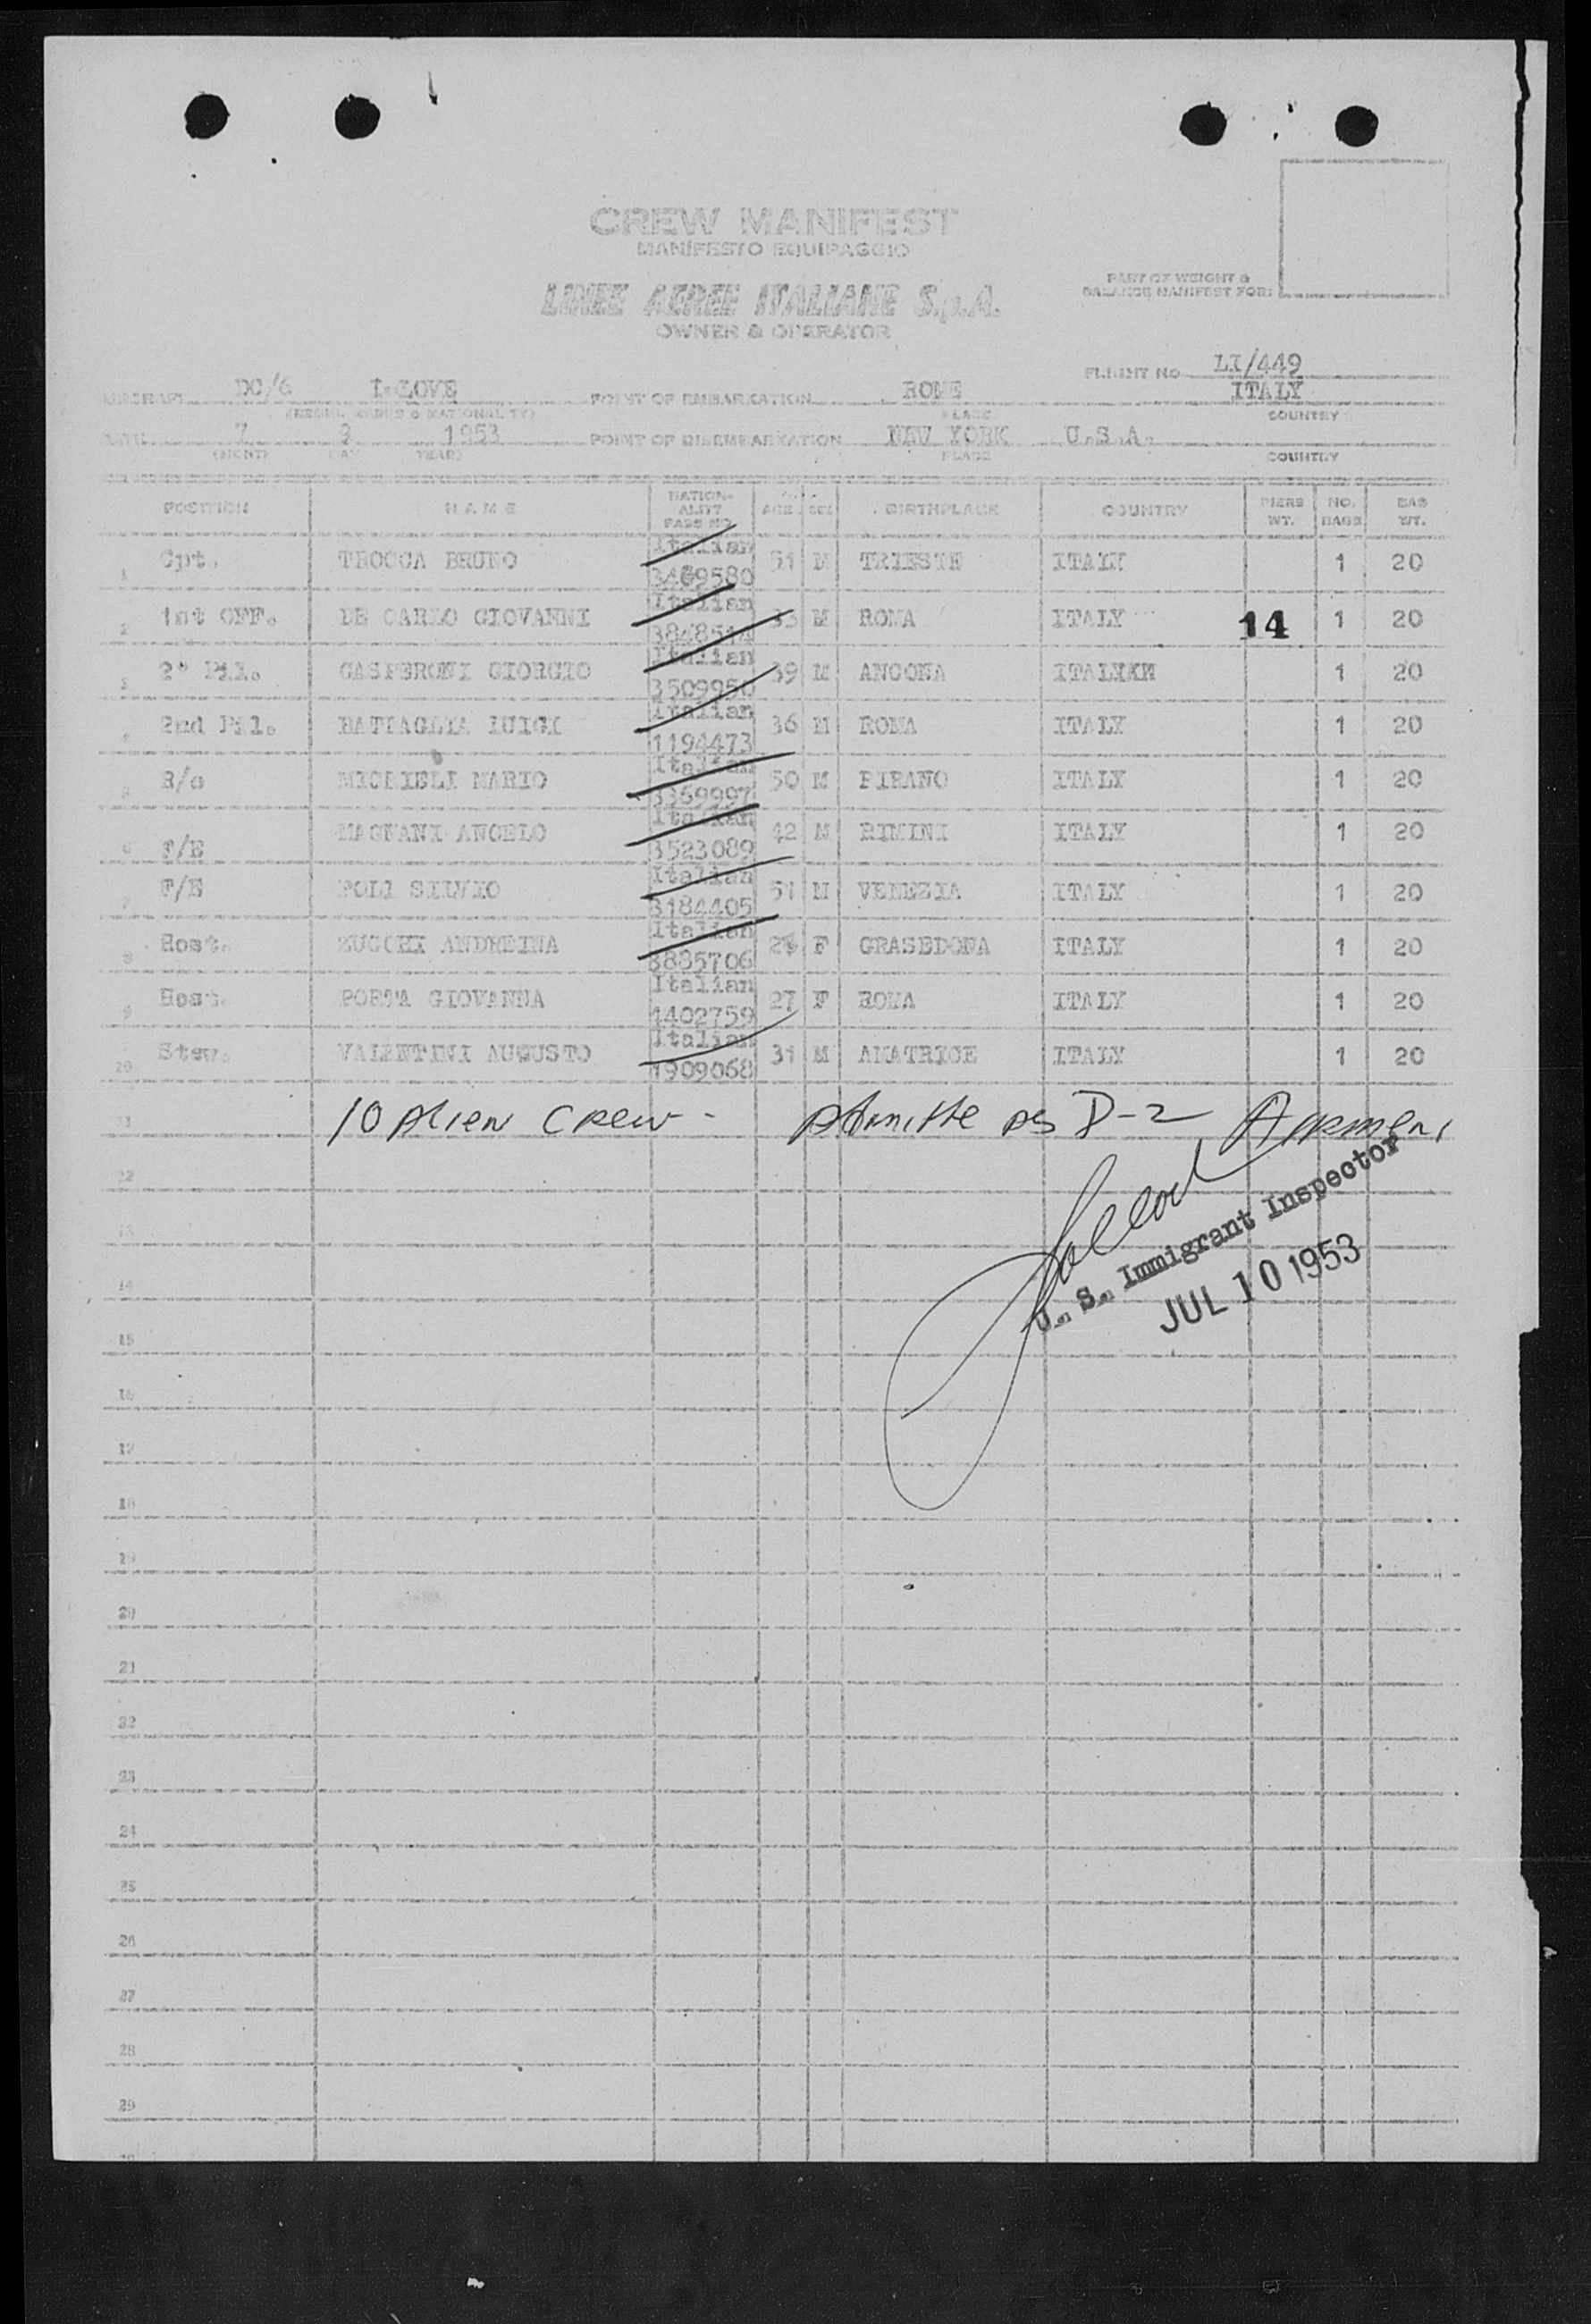 CREW MANIFEST
MANIFESTO EQUIPAGGIO
LINEE AEREE ITALIANE S.p.A.
OWNER & OPERATOR
PART OF WEIGHT &
BALANCE MANIFEST FOR:
FLIGHT No LI/449
AIRCRAFT DC/6 I-LOVE POINT OF EMBARKATION ROME ITALY
(REGIS. MARKS & NATIONALITY) PLACE COUNTRY
DATE 7 9 1953 POINT OF DISEMBARKATION NEW YORK U.S.A.
(MONTH DAY YEAR) PLACE COUNTRY
POSITION NAME NATION-ALITY PASS NO AGE SEX BIRTHPLACE COUNTRY PIERS WT. NO. BAGS BAG WT.
1 Cpt. TROCCA BRUNO Italian 3469580 51 M TRIESTE ITALY 1 20
2 1st OFF. DE CARLO GIOVANNI Italian 3848514 33 M ROMA ITALY 14 1 20
3 2° Pil. GASPERONI GIORGIO Italian 3509950 39 M ANCONA ITALY 1 20
4 2nd Pil. BATTAGLIA LUIGI Italian 1194473 36 M ROMA ITALY 1 20
5 R/o MICHIELI MARIO Italian 3369997 50 M PIRANO ITALY 1 20
6 F/E MAGNANI ANGELO Italian 3523089 42 M RIMINI ITALY 1 20
7 F/E POLI SILVIO Italian 3184405 51 M VENEZIA ITALY 1 20
8 Host. ZUCCHI ANDREINA Italian 3885706 F GRASEDONA ITALY 1 20
9 Host. PORTA GIOVANNA Italian 1402759 27 F ROMA ITALY 1 20
10 Stew. VALENTINI AUGUSTO Italian 1909068 31 M AMATRICE ITALY 1 20
11 10 Alien Crew - as D-2
12
U. S. Immigrant Inspector
13
JUL 10 1953
14
15
16
17
18
19
20
21
22
23
24
25
26
27
28
29